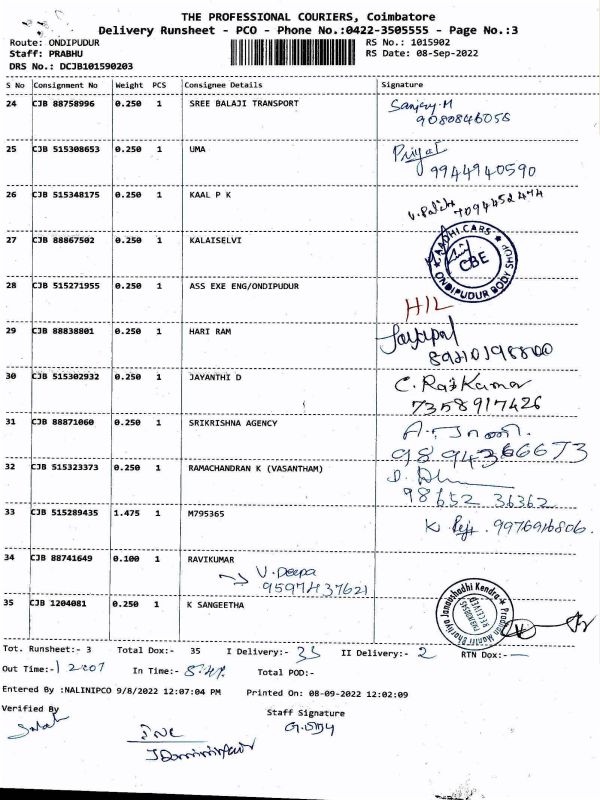 THE PROFESSIONAL COURIERS, Coimbatore
Delivery Runsheet - PCO - Phone No.:0422-3505555 - Page No.:3
Route: ONDIPUDUR
RS No.: 1015902
Staff: PRABHU
RS Date: 08-Sep-2022
DRS No.: DCJB101590203
S No Consignment No Weight PCS Consignee Details Signature
24 CJB 88758996 0.250 1 SREE BALAJI TRANSPORT Sanjay.M
9080846056
25 CJB 515308653 0.250 1 UMA
9944940590
26 CJB 515348175 0.250 1 KAAL P K 7094452474
27 CJB 88867502 0.250 1 KALAISELVI
AADHI CARS CBE ONDIPUDUR BODY SHOP
28 CJB 515271955 0.250 1 ASS EXE ENG/ONDIPUDUR
H/L
29 CJB 88838801 0.250 1 HARI RAM
30 CJB 515302932 0.250 1 JAYANTHI D C. RajKumar
7358917426
31 CJB 88871060 0.250 1 SRIKRISHNA AGENCY
9894366673
32 CJB 515323373 0.250 1 RAMACHANDRAN K (VASANTHAM)
98652 36362
33 CJB 515289435 1.475 1 M795365
9976916806
34 CJB 88741649 0.100 1 RAVIKUMAR
V. Deepa
9597437621
35 CJB 1204081 0.250 1 K SANGEETHA
Pradhan Mantri Bhartiya Janaushadhi Kendra
RECEIVED
Tot. Runsheet:- 3 Total Dox:- 35 I Delivery:- 33 II Delivery:- 2 RTN Dox:-
Out Time:- In Time:- Total POD:-
Entered By :NALINIPCO 9/8/2022 12:07:04 PM Printed On: 08-09-2022 12:02:09
Verified By
Staff Signature